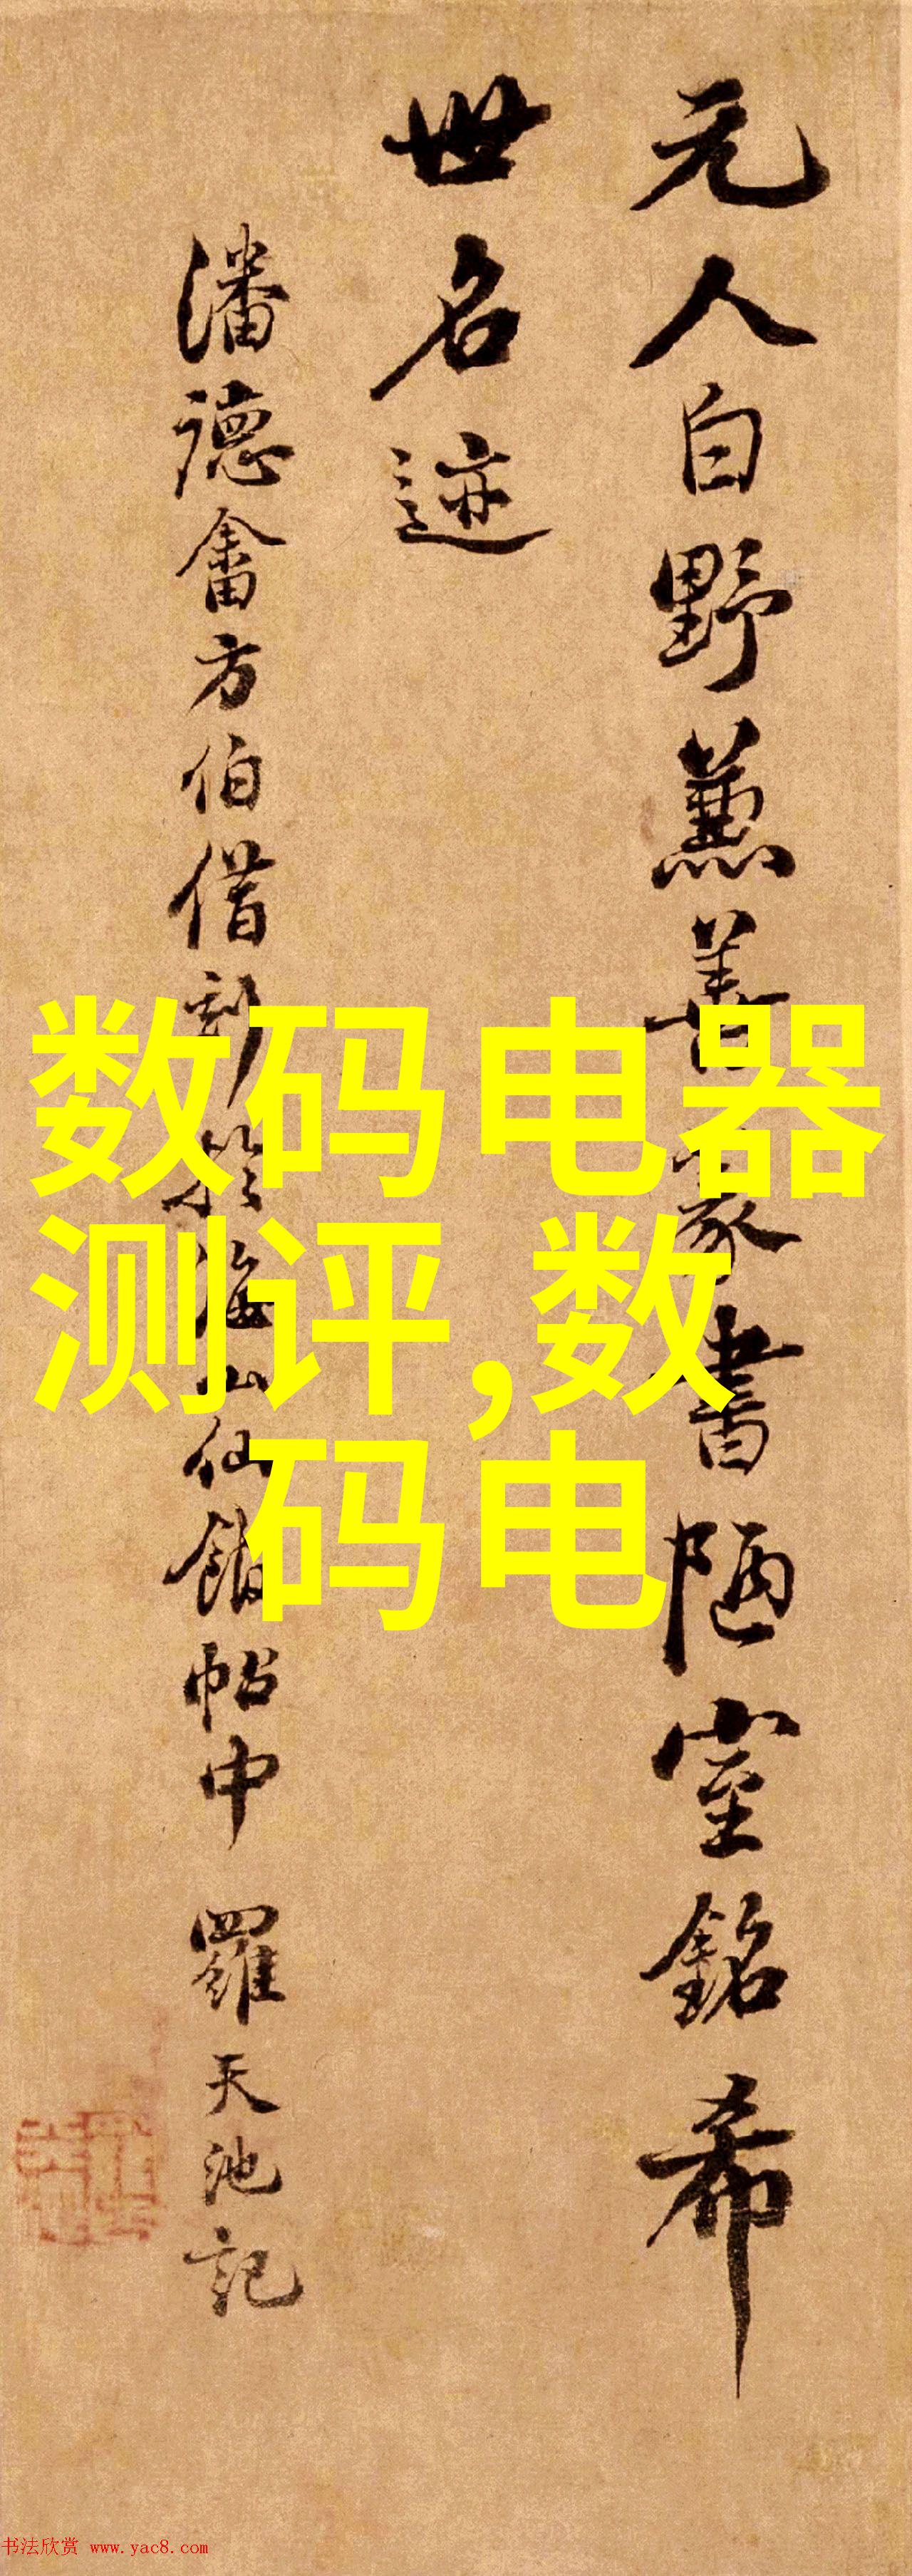 元人白野兼善篆書陋室銘希
世名迹
潘德畬方伯借刻於海山仙館帖中 羅天池記
数码电器
测评,数
码电
书法欣赏 www.yac8.com